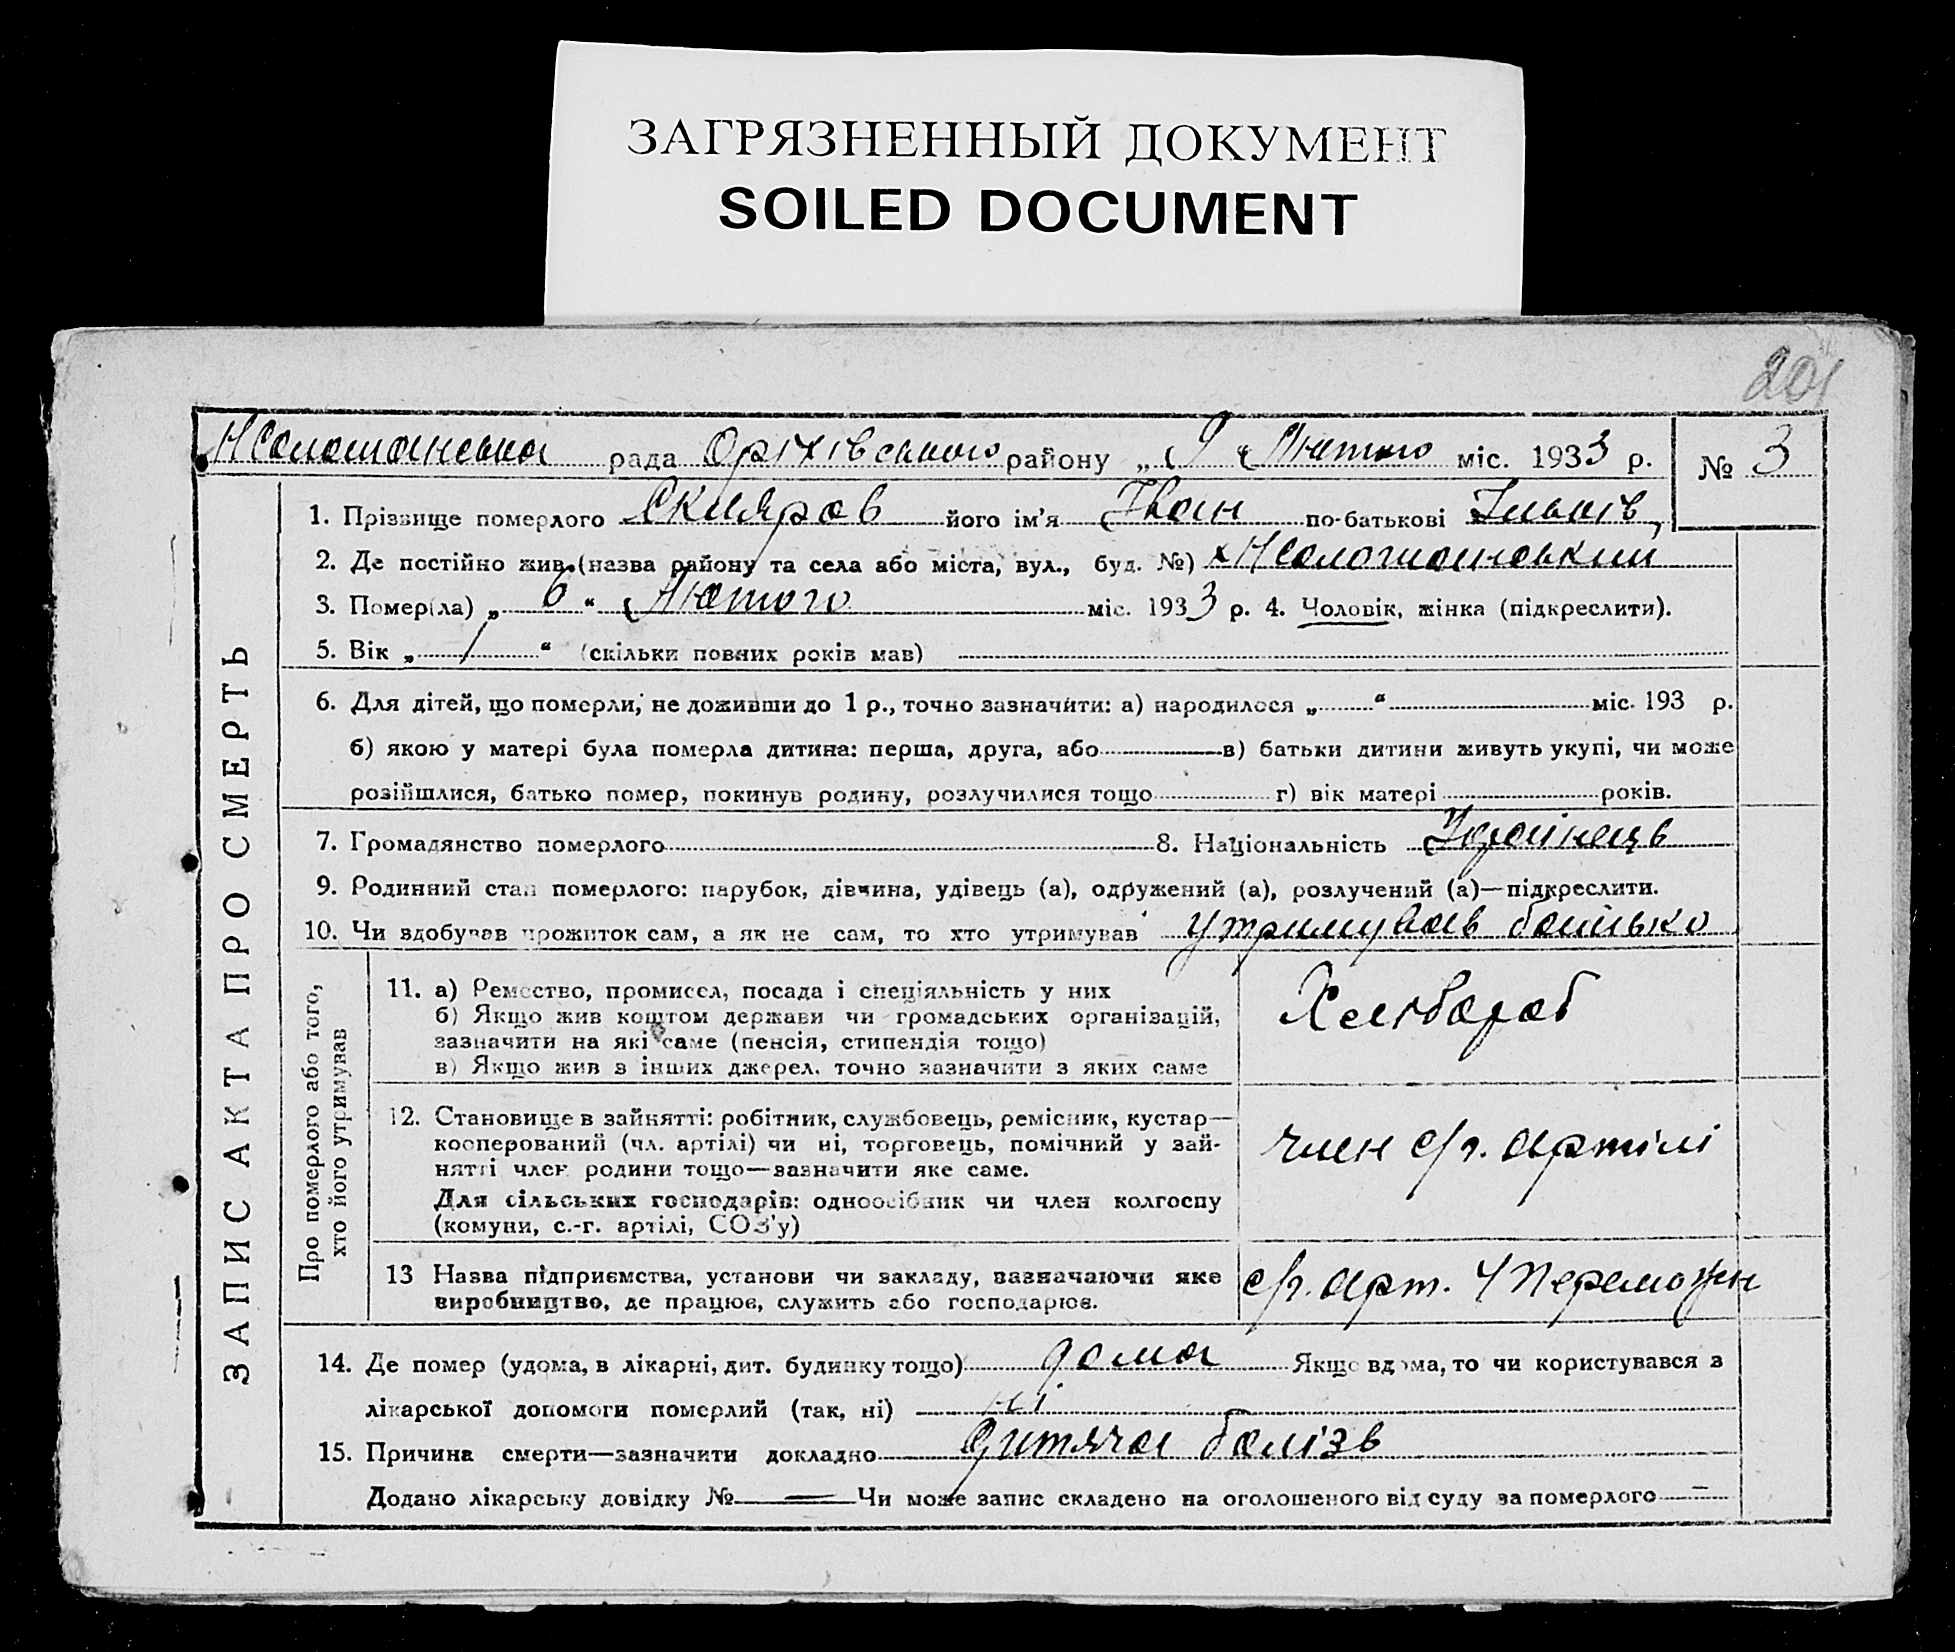 ЗАГРЯЗНЕННЫЙ ДОКУМЕНТ
SOILED DOCUMENT
201
Н Солошанська рада Оріхівського району „ 9 " Лютого міс. 1933 р. № 3
1. Прізвище померлого Скляров його ім'я Іван по-батькові Ільків
2. Де постійно жив (назва району та села або міста, вул., буд. №) х Н Солошанський
3. Помер(ла) „ 6 “ Лютого міс. 1933 р. 4. Чоловік, жінка (підкреслити).
5. Вік „ 1 “ (скільки повних років мав)
6. Для дітей, що померли, не доживши до 1 р., точно зазначити: а) народилося „ “ міс. 193 р.
б) якою у матері була померла дитина: перша, друга, або в) батьки дитини живуть укупі, чи може
розійшлися, батько помер, покинув родину, розлучилися тощо г) вік матері років.
7. Громадянство померлого 8. Національність Українець
9. Родинний стан померлого: парубок, дівчина, удівець (а), одружений (а), розлучений (а)—підкреслити.
10. Чи здобував прожиток сам, а як не сам, то хто утримував утримував батько
ЗАПИС АКТА ПРО СМЕРТЬ
Про померлого або того,
хто його утримував
11. а) Ремество, промисел, посада і спеціяльність у них
б) Якщо жив коштом держави чи громадських організацій,
зазначити на які саме (пенсія, стипендія тощо)
в) Якщо жив з інших джерел, точно зазначити з яких саме
Хлібороб
12. Становище в зайнятті: робітник, службовець, ремісник, кустар—
кооперований (чл. артілі) чи ні, торговець, помічний у зай-
нятті член родини тощо—зазначити яке саме.
Для сільських господарів: одноосібник чи член колгоспу
(комуни, с.-г. артілі, СОЗ'у)
член с/г. артілі
13 Назва підприємства, установи чи закладу, зазначаючи яке
виробництво, де працює, служить або господарює.
с/г. арт. Ч Переможн
14. Де помер (удома, в лікарні, дит. будинку тощо) дома Якщо вдома, то чи користувався з
лікарської допомоги померлий (так, ні) ні
15. Причина смерти—зазначити докладно дитяча болізв
Додано лікарську довідку № — Чи може запис складено на оголошеного від суду за померлого —